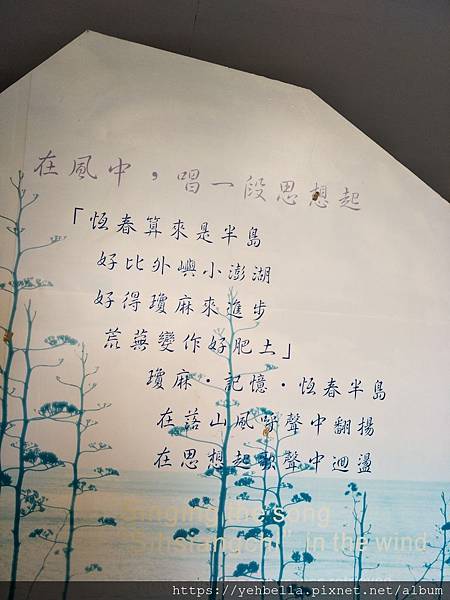 在風中，唱一段思想起
「恆春算來是半島
好比外嶼小澎湖
好得瓊麻來進步
荒蕪變作好肥土」
瓊麻·記憶·恆春半島
在落山風呼聲中翻揚
在思想起歌聲中迴盪
Singing the song
"Sihsiangchi" in the wind
https://yehbella.pixnet.net/album